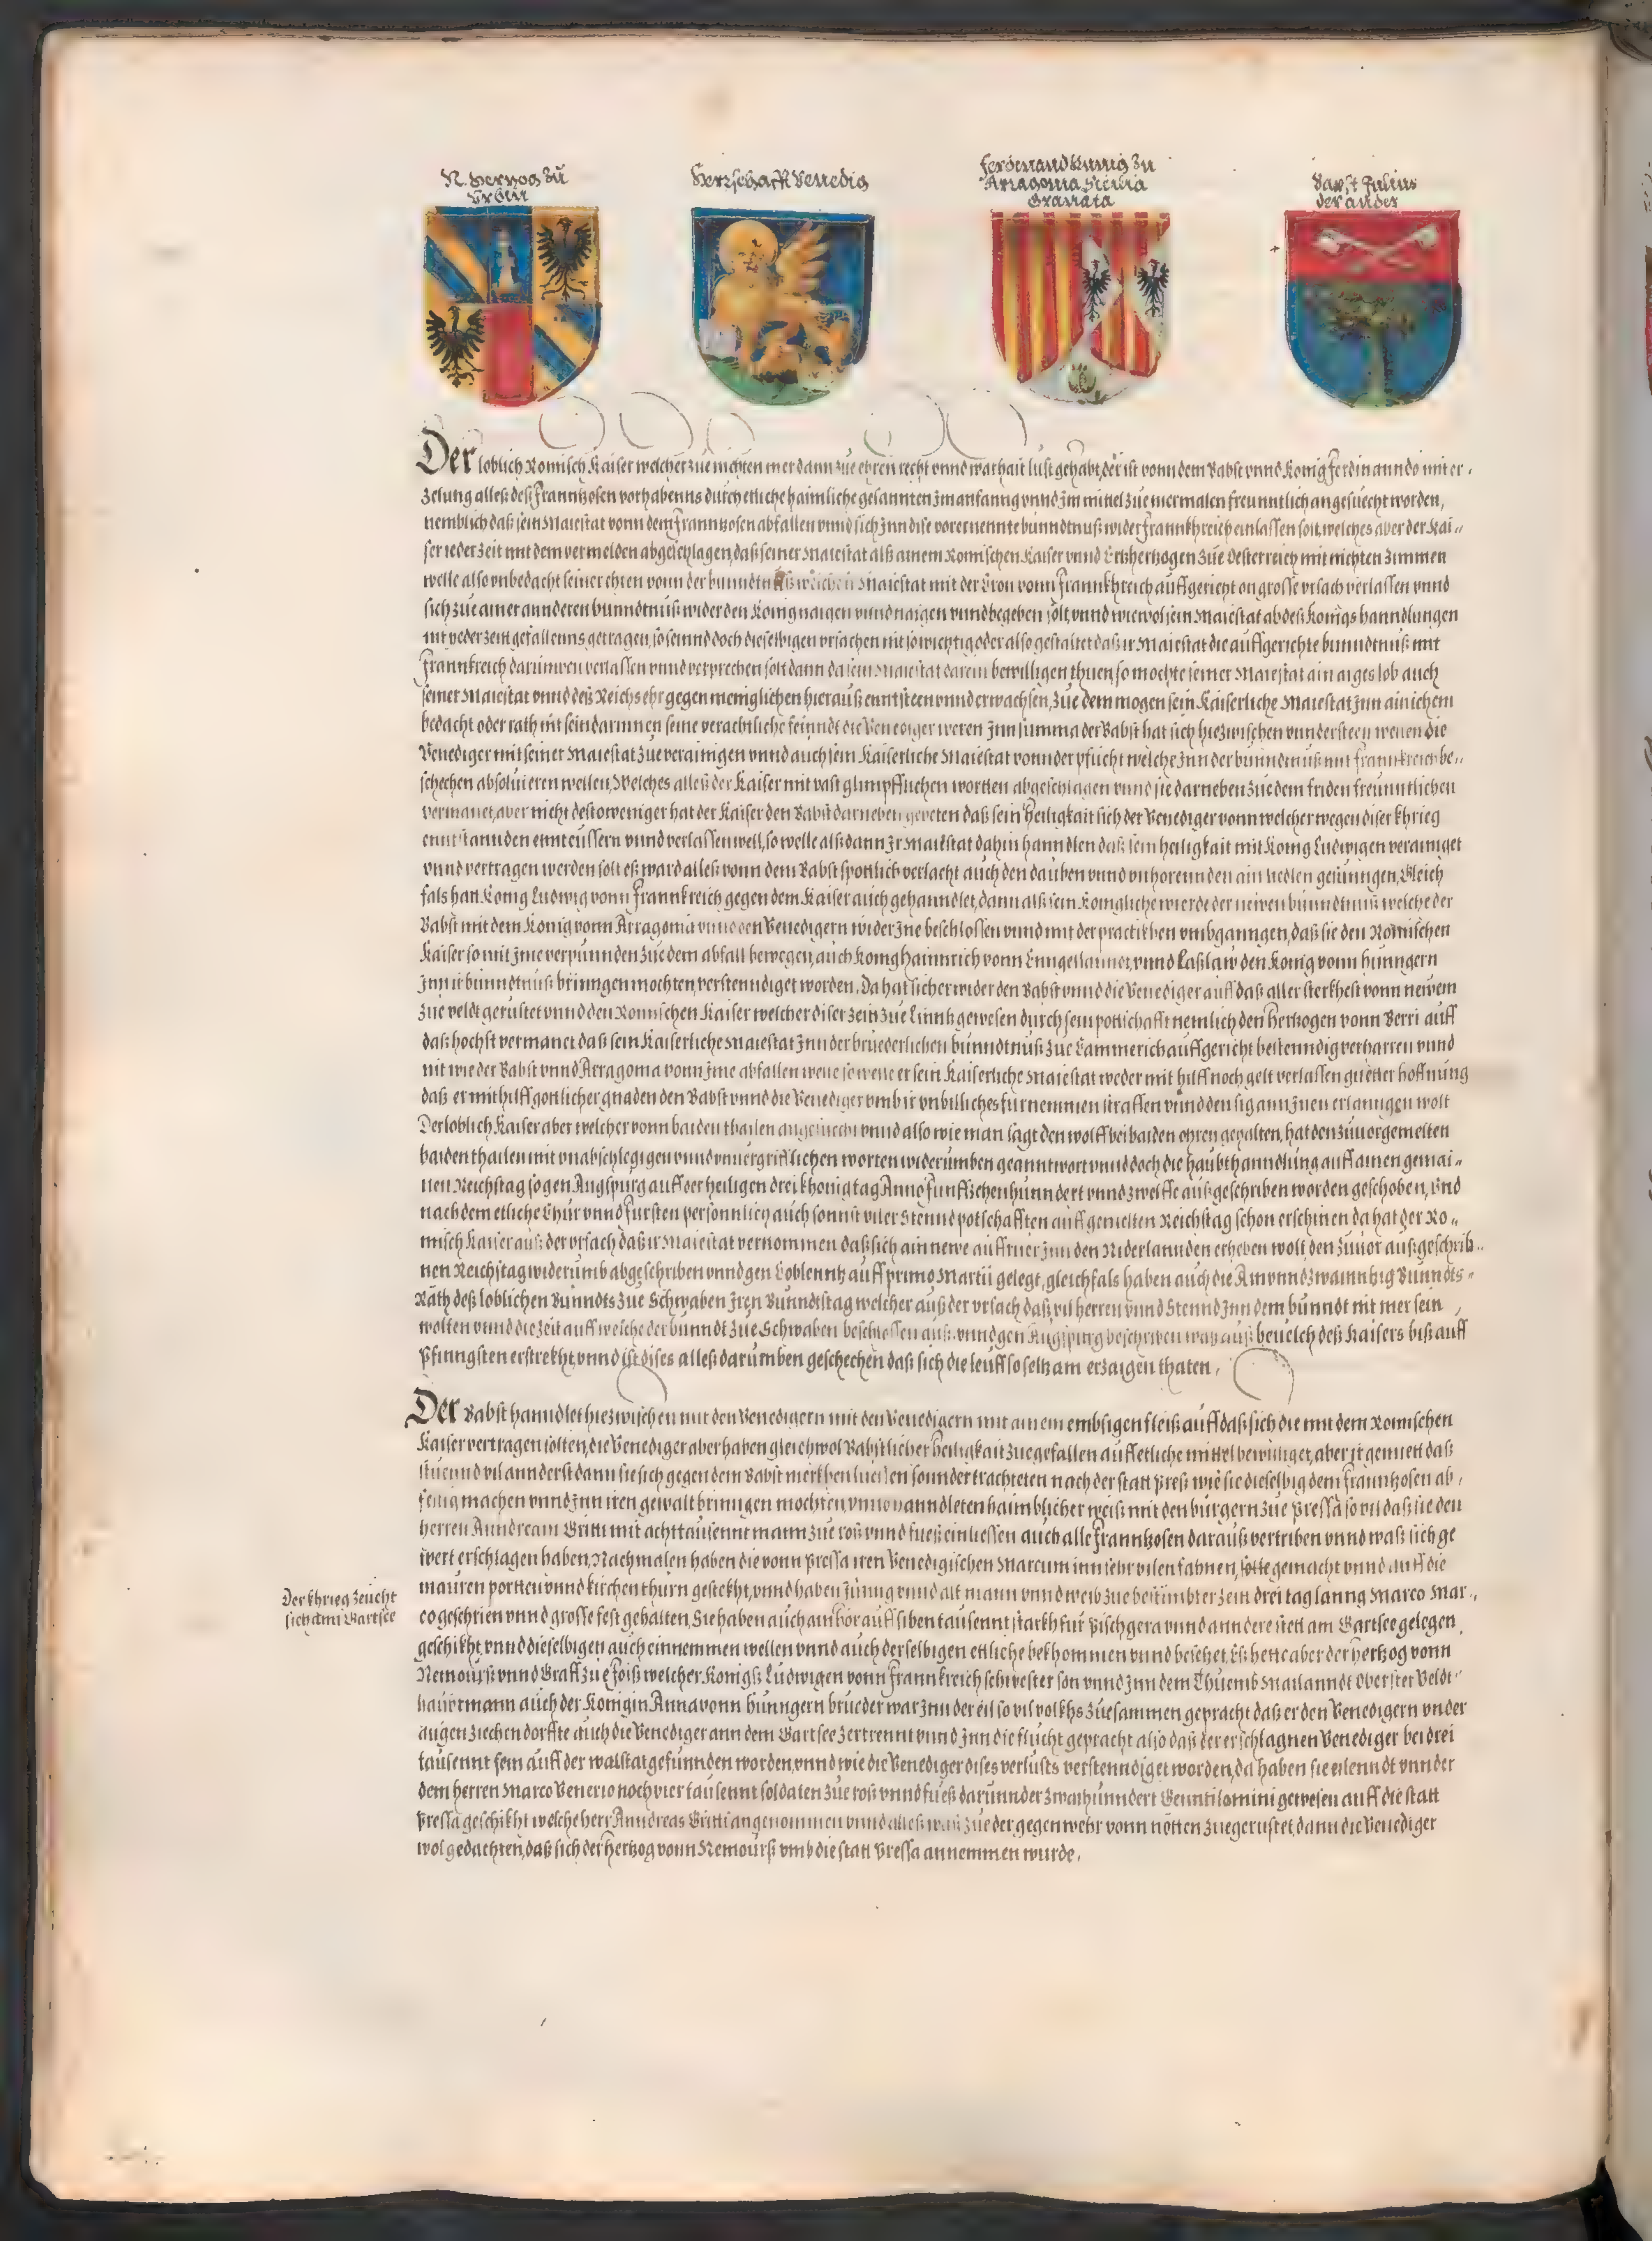 N. Hertzog zu
Urbin
Herrschafft Venedig
Ferdinand Kunig zu
Arragonia Sicilia
Granata
Babst Julius
der ander
Der loblich Romisch Kaiser welcher zue nichten mer dann zue ehren recht vnnd warhait lust gehabt, der ist vonn dem Babst vnnd Konig Ferdinannds mit er-
zelung alles deß Frannzosen vorhabenns durch etliche haimliche gesannten Jm anfanng vnnd Jm mittel zue mermalen freunntlich angesuecht worden,
nemblich daß sein Maiestat vonn dem Frannzosen abfallen vnnd sich Jnn dise vorernennte bunndtnuß wider Frannkhreich einlassen solt, welches aber der Kai-
ser ieder zeit mit dem vermelden abgeschlagen, daß seiner Maiestat alß ainem Romischen Kaiser vnnd Ertzhertzogen zue Osterreich mit nichten zimmen
welle also vnbedacht seiner ehren vonn der bunndtnuß welche sein Maiestat mit der Cron vonn Frannkhreich auffgericht on grosse vrsach verlassen vnnd
sich zue ainer annderen bunndtnuß wider den Konig naigen vnnd naigen vnnd begeben solt, vnnd wiewol sein Maiestat ab deß Konigs hanndlungen
nit yeder zeit gefallenns getragen, so seinnd doch dieselbigen vrsachen nit so wichtig oder also gestaltet daß ir Maiestat die auffgerichte bunndtnuß mit
Frannkreich darumen verlassen vnnd verprechen solt dann da sein Maiestat darein bewilligen thuen, so mochte seiner Maiestat ain arges lob auch
seiner Maiestat vnnd deß Reichs ehr gegen meniglichen hierauß enntsteen vnnd erwachsen, Zue dem mogen sein Kaiserliche Maiestat Jnn ainichem
bedacht oder rath nit sein darinnen seine verachtliche feinndt die Venediger weren Jnn summa der Babst hat sich hiezwischen vnndersteen wellen die
Venediger mit seiner Maiestat zue verainigen vnnd auch sein Kaiserliche Maiestat vonn der pflicht welche Jnn der bunndtnuß mit Frannkreich be-
schechen absoluieren wellen, Welches alles der Kaiser mit vast glimpfflichen wortten abgeschlagen vnnd sie darneben zue dem friden freunntlichen
vermanet, aber nicht destoweniger hat der Kaiser den Babst darneben gebeten daß sein Heiligkait sich der Venediger vonn welcher wegen diser khrieg
enntstannden ennteussern vnnd verlassen well, so welle alß dann Jr Maiestat dahin hanndlen daß sein heiligkait mit Konig Ludwigen verainiget
vnnd vertragen werden solt eß ward alleß vonn dem Babst spottlich verlacht auch den dauben vnnd vnhorennden ain liedlen gesungen, Gleich
fals hatt Konig Ludwig vonn Frannkreich gegen dem Kaiser auch gehanndlet, dann alß sein Konigliche wierde der neiwen bunndtnuß welche der
Babst mit dem Konig vonn Arragonia vnnd den Venedigern wider Jne beschlossen vnnd mit der practikhen vmbganngen, daß sie den Romischen
Kaiser so mit Jme verpunnden zue dem abfall bewegen, auch Konig Hainnrich vonn Enngellanndt, vnnd Laßlaw den Konig vonn hunngern
Jnn ir bunndtnuß brinngen mochten, verstenndiget worden, Da hat sich er wider den Babst vnnd die Venediger auff daß aller sterkhest vonn neiwem
zue veldt gerustet vnnd den Romischen Kaiser welcher diser zeit zue Linntz gewesen durch sein pottschafft nemlich den hertzogen vonn Berri auff
daß hochst vermanet daß sein Kaiserliche Maiestat Jnn der bruederlichen bunndtnuß zue Cammerich auffgericht bestenndig verharren vnnd
nit wie der Babst vnnd Arragonia vonn Jme abfallen welle so welle er sein Kaiserliche Maiestat weder mit hilff noch gelt verlassen guetter hoffnung
daß er mit hilff gottlicher gnaden den Babst vnnd die Venediger vmb ir vnbilliches furnemmen straffen vnnd den sig ann Jnen erlanngen wolt
Der loblich Kaiser aber welcher vonn baiden thailen angesuecht vnnd also wie man sagt den wolff bei baiden ohren gehalten, hat den zuuorgemelten
baiden thailen mit vnabschlegigen vnnd vnuergrifflichen worten widerumben geanntwort vnnd doch die haubthanndlung auff ainen gemai-
nen Reichstag so gen Augspurg auff der heiligen dreikhonig tag Anno funffzehenhunndert vnnd zwelffe außgeschriben worden geschoben, vnd
nach dem etliche Chur vnnd fursten personnlich auch sonnst viler Stennd potschafften auff gemelten Reichstag schon erschinen da hat der Ro-
misch Kaiser auß der vrsach daß ir Maiestat vernommen daß sich ain newe auffruer Jnn den Niderlannden erheben wolt den zuuor außgeschrib-
nen Reichstag widerumb abgeschriben vnnd gen Coblenntz auff primo Martii gelegt, gleichfals haben auch die Ainvnndzwainntzig Bunndts-
Räth deß loblichen Bunndts zue Schwaben Jren Bunndtstag welcher auß der vrsach daß vil herren vnnd Stennd Jnn dem bunndt nit mer sein
wolten vnnd die zeit auff welche der bunndt zue Schwaben beschlossen auß, vnnd gen Augspurg beschriben was auß beuelch deß Kaisers biß auff
Pfinngsten erstrekht, vnnd ist dises alleß darumben geschechen daß sich die leuff so seltzam erzaigen thaten,
Der Babst hanndlet hiezwischen mit den Venedigern mit den Venedigern mit ainem embsigen fleiß auff daß sich die mit dem Romischen
Kaiser vertragen solten, die Venediger aber haben gleichwol Babstlicher heiligkait zue gefallen auff etliche mittel bewilliget, aber ir gemiett daß
stuennd vil annderst dann sie sich gegen dem Babst merkhen liessen sonnder trachteten nach der statt Preß wie sie dieselbig dem Frannzosen ab-
fellig machen vnnd Jnn iren gewalt brinngen mochten, vnnd hanndleten haimblicher weiß mit den burgern zue Pressa so vil daß sie den
herren Anndream Gritti mit achttausennt mann zue roß vnnd fueß einliessen auch alle Frannzosen darauß vertriben vnnd waß sich ge
wert erschlagen haben, Nachmalen haben die vonn Pressa iren Venedigischen Marcum inn sehr vilen fahnen, gemacht vnnd auff die
mauren portten vnnd kirchenthurn gestekht, vnnd haben Jung vnnd alt mann vnnd weib zue bestimbter zeit drei tag lanng Marco Mar-
Der khrieg zeucht
sich ann Gartsee
co geschrien vnnd grosse fest gehalten, Sie haben auch ain hör auff sibentausennt starkh fur Pischgera vnnd anndere stett am Gartsee gelegen
geschikht, vnnd dieselbigen auch einnemmen wellen vnnd auch derselbigen ettliche bekhommen vnnd besetzet, Eß hette aber der hertzog vonn
Nemourß vnnd Graff zue Foiß welcher Königß Ludwigen vonn Frannkreich schwester son vnnd Jnn dem Thuemb Mailanndt Oberster Veldt-
haubtmann auch der Konigin Anna vonn hunngern brueder war Jnn der eil so vil volkhs zuesammen gepracht daß er den Venedigern vnder
augen ziechen dorffte auch die Venediger ann dem Gartsee zertrennt vnnd Jnn die flucht gepracht also daß der erschlagnen Venediger bei drei
tausennt sein auff der walstat gefunnden worden, vnnd wie die Venediger dises verlusts verstenndiget worden, da haben sie eilenndt vnnder
dem herren Marco Venerio noch vier tausennt soldaten zue roß vnnd fueß darunnder zwaihunndert Genntilomini gewesen auff die statt
Pressa geschikht welche herr Anndreas Gritti angenommen vnnd alleß waß zue der gegenwehr vonn nötten zuegerustet, dann die Venediger
wol gedachten, daß sich der hertzog vonn Nemourß vmb die statt Pressa annemmen wurde.